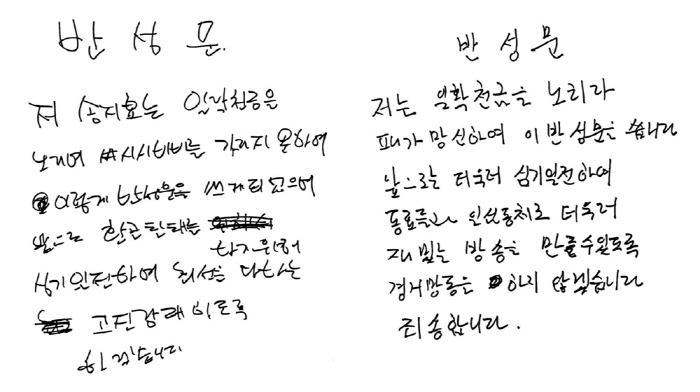 반성문.
저 송지효는 일확천금은
노리며 시시비비를 가리지 못하여
이렇게 반성문을 쓰게 되었으며
앞으로
하지 위해
심기일전하여 최선을 다하는
고진감래 이도록
하겠습니다
반성문
저는 일확천금을 노리다
패가망신하여 이 반성문을 씁니다
앞으로는 더욱더 심기일전하여
동료들과 일심동체로 더욱더
재밌는 방송을 만들수있도록
경거망동은 하지 않겠습니다
죄송합니다.